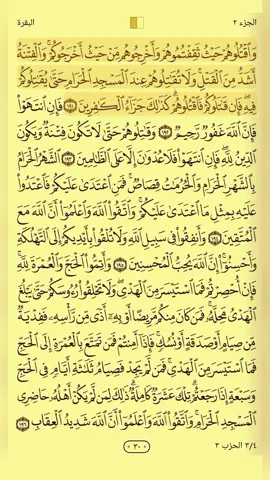 الجزء ٢
البقرة
وَٱقْتُلُوهُمْ حَيْثُ ثَقِفْتُمُوهُمْ وَأَخْرِجُوهُم مِّنْ حَيْثُ أَخْرَجُوكُمْ ۚ وَٱلْفِتْنَةُ
أَشَدُّ مِنَ ٱلْقَتْلِ ۚ وَلَا تُقَٰتِلُوهُمْ عِندَ ٱلْمَسْجِدِ ٱلْحَرَامِ حَتَّىٰ يُقَٰتِلُوكُمْ
فِيهِ ۖ فَإِن قَٰتَلُوكُمْ فَٱقْتُلُوهُمْ ۗ كَذَٰلِكَ جَزَآءُ ٱلْكَٰفِرِينَ ١٩١ فَإِنِ ٱنتَهَوْا۟
فَإِنَّ ٱللَّهَ غَفُورٌ رَّحِيمٌ ١٩٢ وَقَٰتِلُوهُمْ حَتَّىٰ لَا تَكُونَ فِتْنَةٌ وَيَكُونَ
ٱلدِّينُ لِلَّهِ ۖ فَإِنِ ٱنتَهَوْا۟ فَلَا عُدْوَٰنَ إِلَّا عَلَى ٱلظَّٰلِمِينَ ١٩٣ ٱلشَّهْرُ ٱلْحَرَامُ
بِٱلشَّهْرِ ٱلْحَرَامِ وَٱلْحُرُمَٰتُ قِصَاصٌ ۚ فَمَنِ ٱعْتَدَىٰ عَلَيْكُمْ فَٱعْتَدُوا۟
عَلَيْهِ بِمِثْلِ مَا ٱعْتَدَىٰ عَلَيْكُمْ ۚ وَٱتَّقُوا۟ ٱللَّهَ وَٱعْلَمُوٓا۟ أَنَّ ٱللَّهَ مَعَ
ٱلْمُتَّقِينَ ١٩٤ وَأَنفِقُوا۟ فِى سَبِيلِ ٱللَّهِ وَلَا تُلْقُوا۟ بِأَيْدِيكُمْ إِلَى ٱلتَّهْلُكَةِ ۛ
وَأَحْسِنُوٓا۟ ۛ إِنَّ ٱللَّهَ يُحِبُّ ٱلْمُحْسِنِينَ ١٩٥ وَأَتِمُّوا۟ ٱلْحَجَّ وَٱلْعُمْرَةَ لِلَّهِ ۚ
فَإِنْ أُحْصِرْتُمْ فَمَا ٱسْتَيْسَرَ مِنَ ٱلْهَدْىِ ۖ وَلَا تَحْلِقُوا۟ رُءُوسَكُمْ حَتَّىٰ يَبْلُغَ
ٱلْهَدْىُ مَحِلَّهُۥ ۚ فَمَن كَانَ مِنكُم مَّرِيضًا أَوْ بِهِۦٓ أَذًى مِّن رَّأْسِهِۦ فَفِدْيَةٌ
مِّن صِيَامٍ أَوْ صَدَقَةٍ أَوْ نُسُكٍ ۚ فَإِذَآ أَمِنتُمْ فَمَن تَمَتَّعَ بِٱلْعُمْرَةِ إِلَى ٱلْحَجِّ
فَمَا ٱسْتَيْسَرَ مِنَ ٱلْهَدْىِ ۚ فَمَن لَّمْ يَجِدْ فَصِيَامُ ثَلَٰثَةِ أَيَّامٍ فِى ٱلْحَجِّ
وَسَبْعَةٍ إِذَا رَجَعْتُمْ ۗ تِلْكَ عَشَرَةٌ كَامِلَةٌ ۗ ذَٰلِكَ لِمَن لَّمْ يَكُنْ أَهْلُهُۥ حَاضِرِى
ٱلْمَسْجِدِ ٱلْحَرَامِ ۚ وَٱتَّقُوا۟ ٱللَّهَ وَٱعْلَمُوٓا۟ أَنَّ ٱللَّهَ شَدِيدُ ٱلْعِقَابِ ١٩٦
٣/٤ الحزب ٣
٣٠